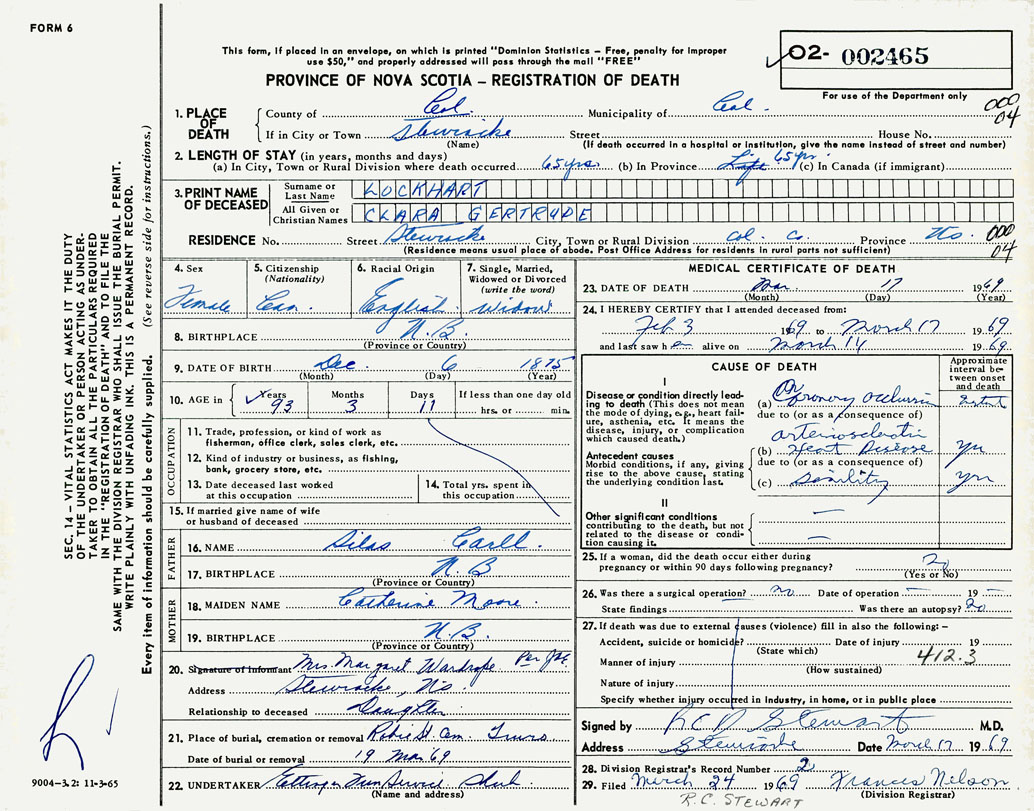 FORM 6
This form, if placed in an envelope, on which is printed "Dominion Statistics – Free, penalty for improper
use $50," and properly addressed will pass through the mail "FREE"
PROVINCE OF NOVA SCOTIA – REGISTRATION OF DEATH
02- 002465
For use of the Department only
000
04
1. PLACE OF DEATH
County of Col. Municipality of Col.
If in City or Town Stewiacke Street House No.
(Name) (If death occurred in a hospital or institution, give the name instead of street and number)
2. LENGTH OF STAY (in years, months and days)
(a) In City, Town or Rural Division where death occurred 65 yrs. (b) In Province Life 65 yr. (c) In Canada (if immigrant)
3. PRINT NAME OF DECEASED
Surname or Last Name LOCKHART
All Given or Christian Names CLARA GERTRUDE
RESIDENCE No. Street Stewiacke City, Town or Rural Division Col. Co. Province N.S. 000
(Residence means usual place of abode. Post Office Address for residents in rural parts not sufficient) 04
4. Sex
Female
5. Citizenship
(Nationality)
Can.
6. Racial Origin
English
7. Single, Married,
Widowed or Divorced
(write the word)
Widow
8. BIRTHPLACE N.B.
(Province or Country)
9. DATE OF BIRTH Dec 6 1875
(Month) (Day) (Year)
10. AGE in Years Months Days If less than one day old
93 3 11 hrs. or min.
OCCUPATION
11. Trade, profession, or kind of work as
fisherman, office clerk, sales clerk, etc.
12. Kind of industry or business, as fishing,
bank, grocery store, etc.
13. Date deceased last worked
at this occupation
14. Total yrs. spent in
this occupation
15. If married give name of wife
or husband of deceased
FATHER
16. NAME Silas Carll.
17. BIRTHPLACE N.B.
(Province or Country)
MOTHER
18. MAIDEN NAME Catherine Moore.
19. BIRTHPLACE N.B.
(Province or Country)
20. Signature of informant Mrs. Margaret Wardrope Per
Address Stewiacke, N.S.
Relationship to deceased Daughter
21. Place of burial, cremation or removal Robie St. Cem. Truro
Date of burial or removal 19 Mar 69
22. UNDERTAKER
(Name and address)
MEDICAL CERTIFICATE OF DEATH
23. DATE OF DEATH Mar. 17 1969
(Month) (Day) (Year)
24. I HEREBY CERTIFY that I attended deceased from:
Feb 3 1969 to March 17 1969
and last saw h er alive on March 14 1969
CAUSE OF DEATH
Approximate interval between onset and death
I
Disease or condition directly leading to death (This does not mean
the mode of dying, e.g., heart failure, asthenia, etc. It means the
disease, injury, or complication
which caused death.)
(a) Coronary occlusion
due to (or as a consequence of)
Antecedent causes
Morbid conditions, if any, giving
rise to the above cause, stating
the underlying condition last.
arteriosclerotic
(b) Heart Disease yrs
due to (or as a consequence of)
(c) senility yrs
II
Other significant conditions
contributing to the death, but not
related to the disease or condition causing it.
25. If a woman, did the death occur either during
pregnancy or within 90 days following pregnancy? No
(Yes or No)
26. Was there a surgical operation? no Date of operation – 19 –
State findings – Was there an autopsy? No
27. If death was due to external causes (violence) fill in also the following: –
Accident, suicide or homicide? Date of injury 19
(State which)
Manner of injury 412.3
(How sustained)
Nature of injury
Specify whether injury occurred in industry, in home, or in public place
Signed by R.C.D Stewart M.D.
Address Stewiacke Date March 17 1969
28. Division Registrar's Record Number 2
29. Filed March 24 1969 Frances Nelson
(Division Registrar)
R.C. STEWART
SEC. 14 – VITAL STATISTICS ACT MAKES IT THE DUTY
OF THE UNDERTAKER OR PERSON ACTING AS UNDER-
TAKER TO OBTAIN ALL THE PARTICULARS REQUIRED
IN THE "REGISTRATION OF DEATH" AND TO FILE THE
SAME WITH THE DIVISION REGISTRAR WHO SHALL ISSUE THE BURIAL PERMIT.
WRITE PLAINLY WITH UNFADING INK. THIS IS A PERMANENT RECORD.
Every item of information should be carefully supplied. (See reverse side for instructions.)
9004-3.2: 11-3-65